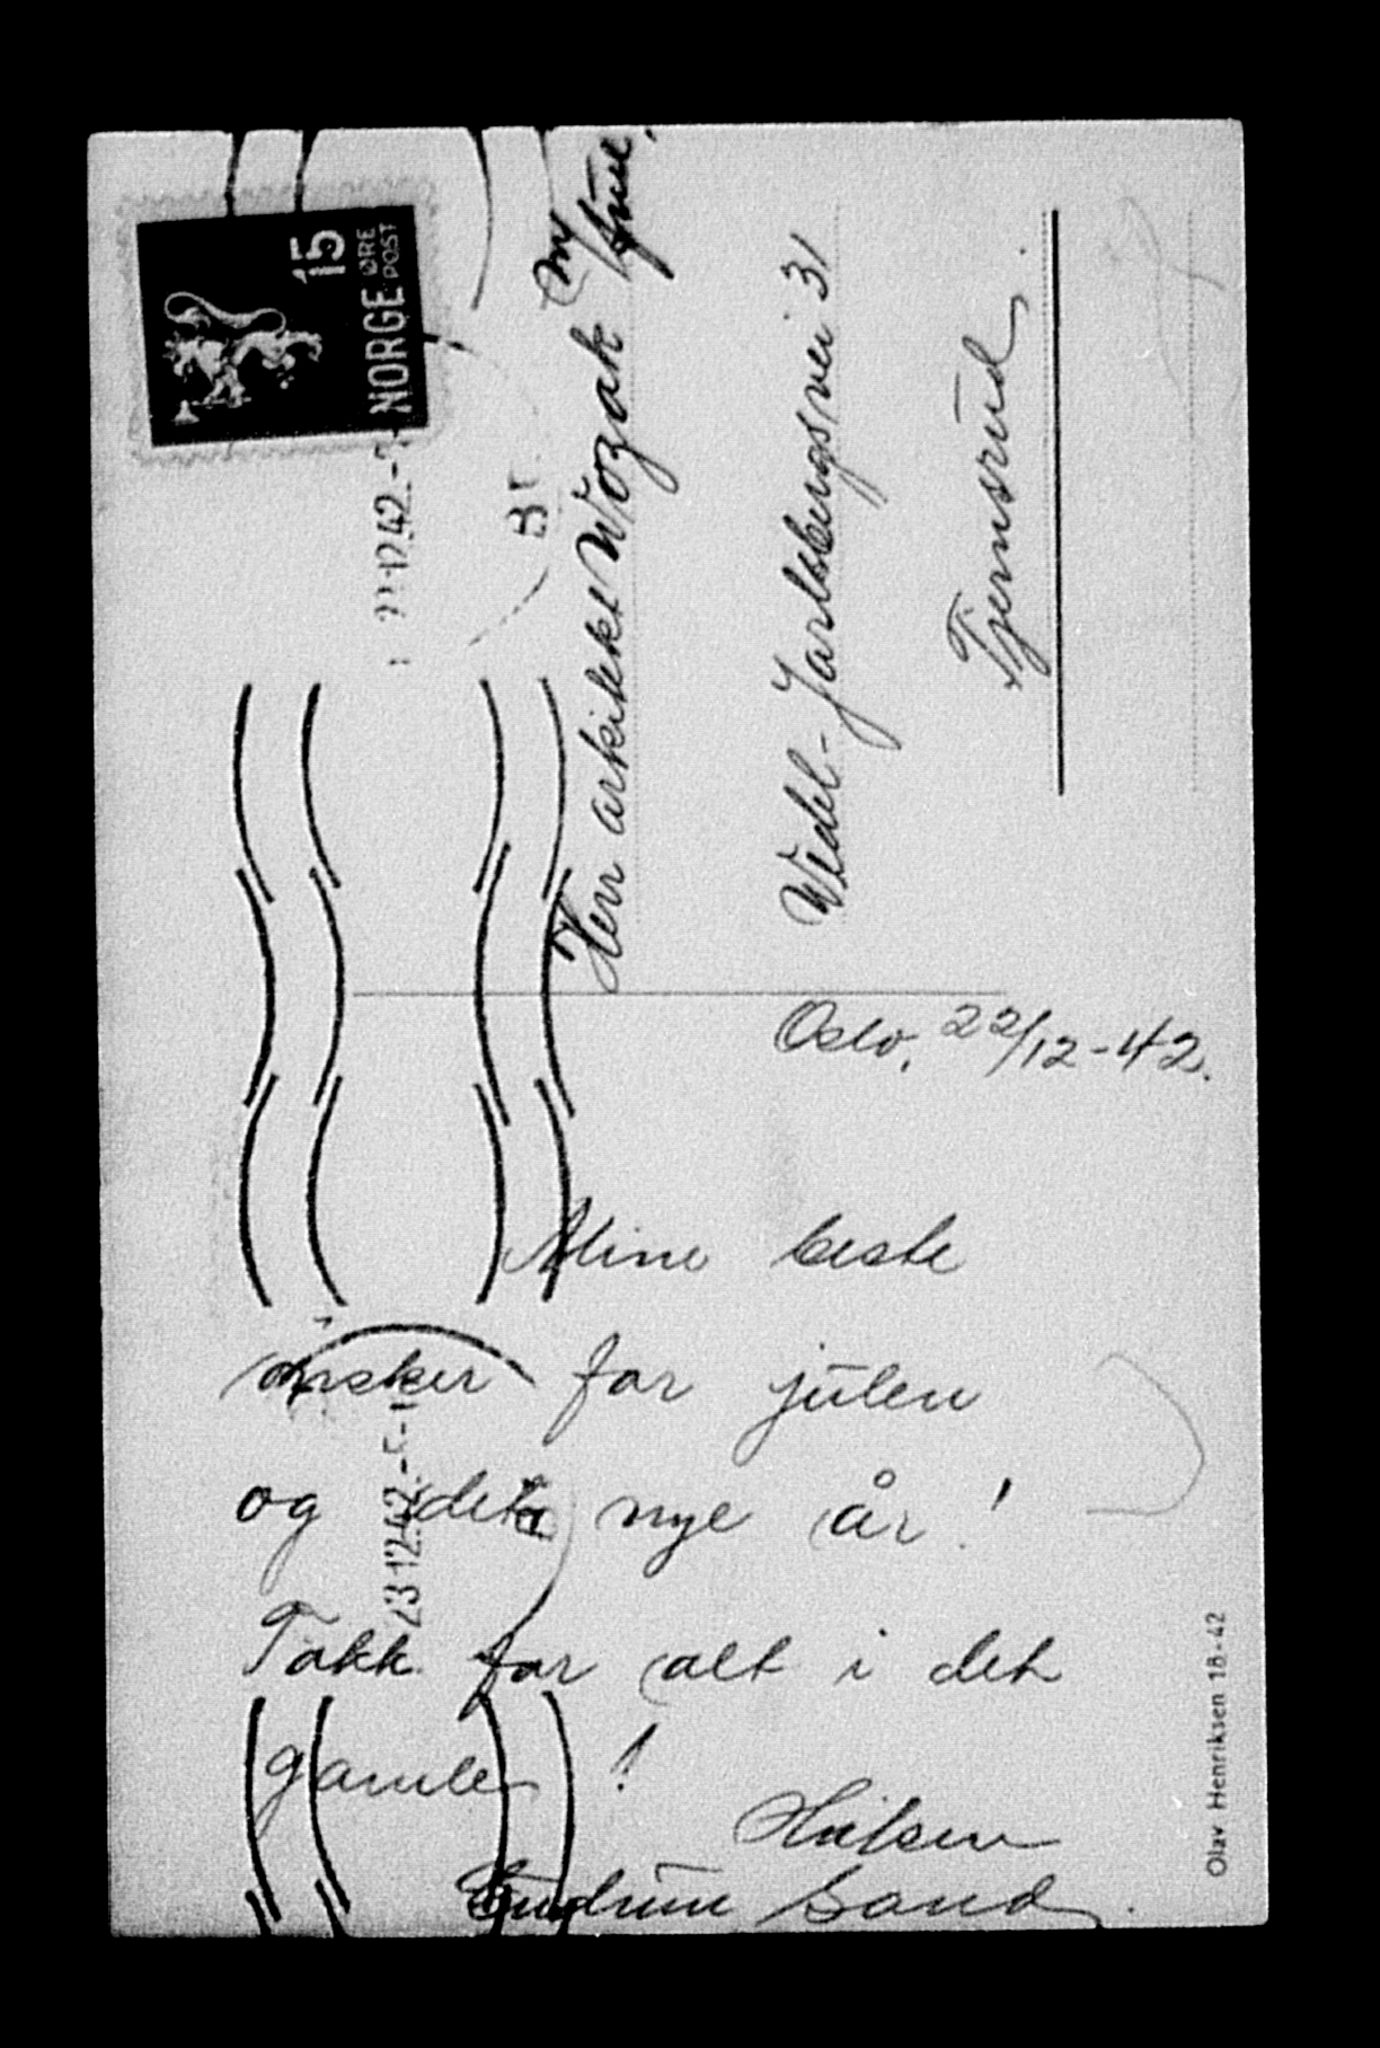 15
ØRE
POST
NORGE
22.12.42.-
23 12.42.-
Herr arkitekt Wozak m/ frue.
Wedel-Jarlsbergsvei 31
Tjernsrud.
Oslo, 22/12-42.
Mine beste
ønsker for julen
og det nye år!
Takk for alt i det
gamle!
Hilsen
Gudrun Sand.
Olav Henriksen 18-42